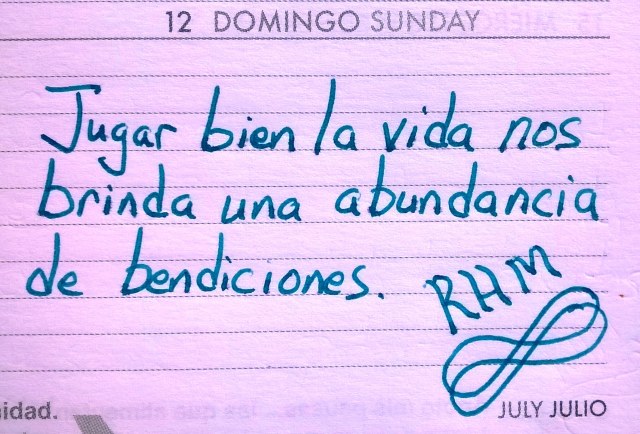 12 DOMINGO SUNDAY
Jugar bien la vida nos
brinda una abundancia
de bendiciones.
RHM
JULY JULIO
idad.